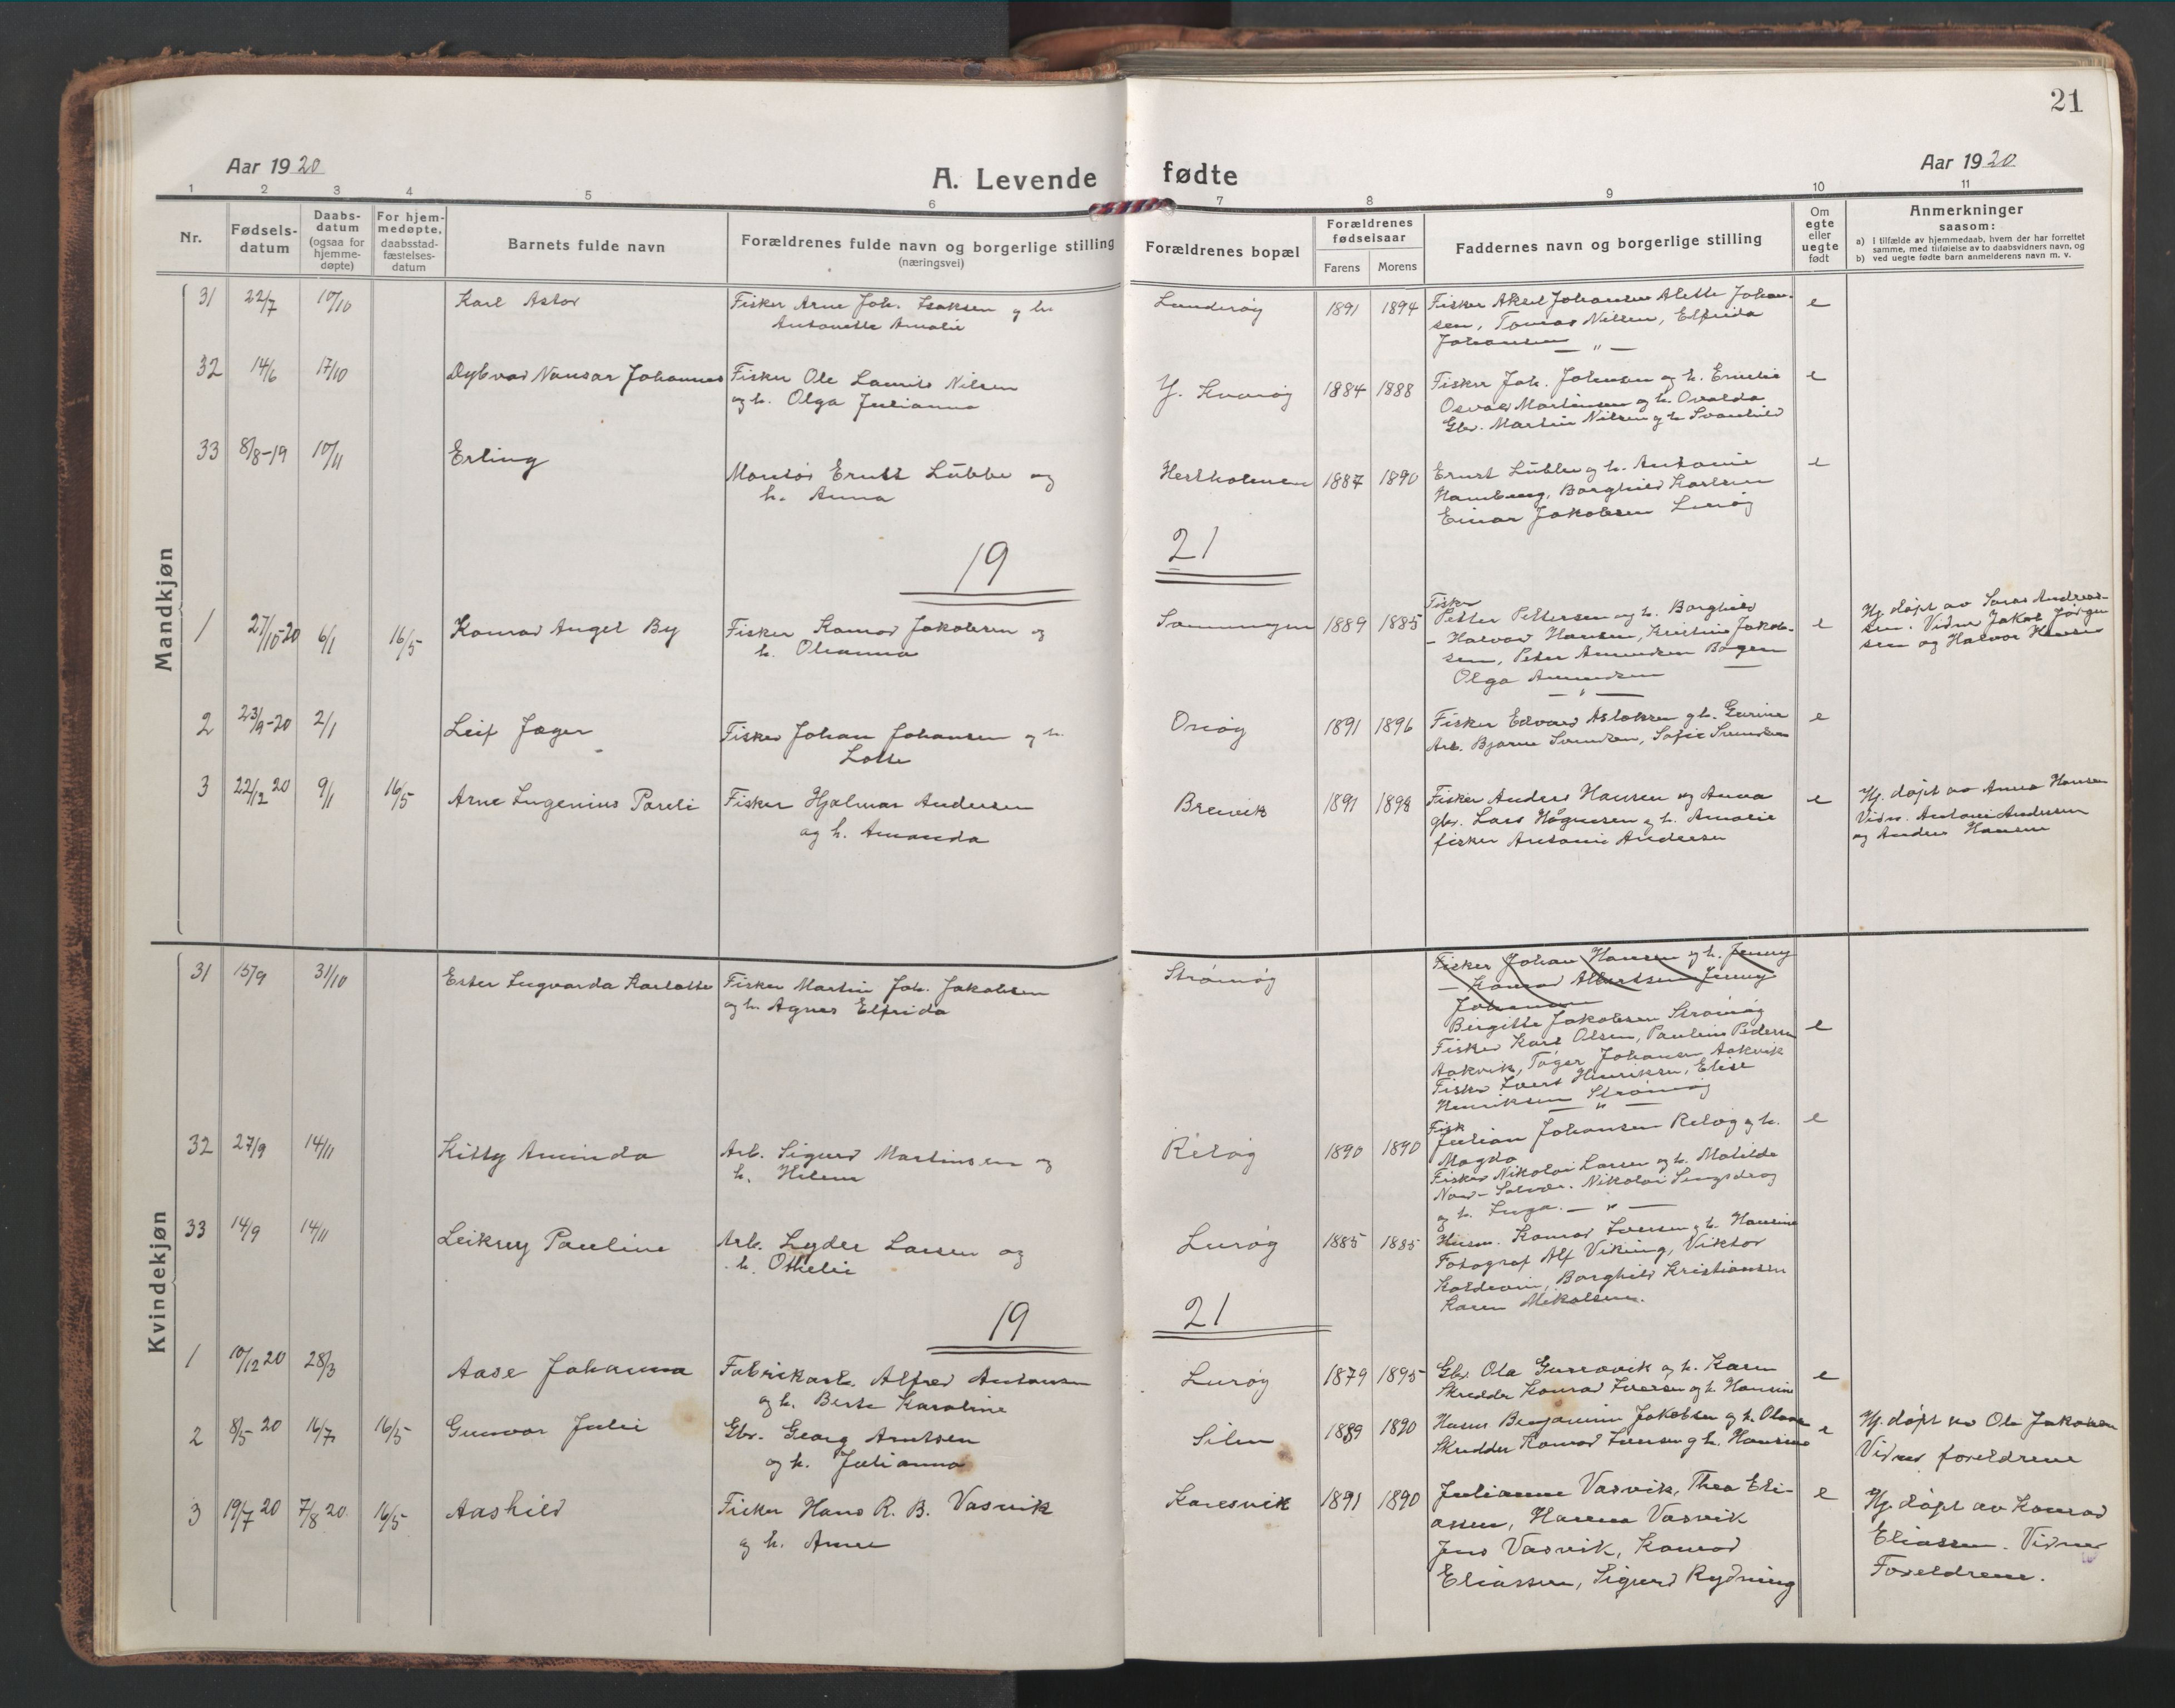 21
Aar 1920
A. Levende fødte
Aar 1920
1 2 3 4 5 6 7 8 9 10 11
Nr.
Fødsels-
datum
Daabs-
datum
(ogsaa for
hjemme-
døpte)
For hjem-
medøpte,
daabsstad-
fæstelses-
datum
Barnets fulde navn
Forældrenes fulde navn og borgerlige stilling
(næringsvei)
Forældrenes bopæl
Forældrenes
fødselsaar
Farens Morens
Faddernes navn og borgerlige stilling
Om
egte
eller
uegte
født
Anmerkninger
saasom:
a) i tilfælde av hjemmedaab, hvem der har forrettet
samme, med tilføielse av to daabsvidners navn, og
b) ved uegte fødte barn anmelderens navn m. v.
Mandkjøn
31 22/7 10/10 Karl Astor
Fisker Arne Joh. Isaksen og h.
Antonette Amalie
Lunderøy 1891 1894
Fisker Aksel Johansen Alette Johan-
sen, Tomas Nilsen, Elfrida
Johansen — " —
e
32 14/6 17/10 Dybvad Nansar Johannes
Fisker Ole Laurits Nilsen
og h. Olga Julianna
Y. Kvarøy 1884 1888
Fisker Joh. Johansen og h. Emelie
Osvald Martinsen og h. Ovalda
Gbr. Martin Nilsen og h. Svanhild
e
33 8/8-19 10/11 Erling
Montør Ernst Lübbe og
h. Anna
Hestholmen 1887 1890
Ernst Lübbe og h. Antonie
Hamburg, Borghild Karlsen
Einar Jakobsen Lurøy
e
19 21
1 27/10-20 6/1 16/5 Konrad Angel By
Fisker Konrad Jakobsen og
h. Oleanna
1889 1885
Fisker
Petter Pettersen og h. Borghild
- Halvor Hansen, Kristine Jakob-
sen, Peter Amundsen Bogen
Olga Amundsen
— " —
e
Hj. døpt av Andreas-
sen. Vidner Jakob Jørgen
sen og Halvor Hansen
2 23/9-20 2/1 Leif Jæger
Fisker Johan Johansen og h.
Lotte
Onøy 1891 1896
Fisker Edvard Aslaksen og h. Gurine
Arb. Bjarne Svendsen, Sofie Svendsen
e
3 22/12 20 9/1 16/5 Arne Eugenius Pareli
Fisker Hjalmar Andersen
og h. Amanda
Breivik 1891 1898
Fisker Anders Hansen og Anna
gbr. Lars Høgnesen og h. Amalie
fisker Antoni Andersen
e
Hj. døpt av Anna Hansen
Vidn. Antoni Andersen
og Anders Hansen
Kvindekjøn
31 15/9 31/10 Ester Ingvarda Karlotte
Fisker Martin Joh. Jakobsen
og h. Agnes Elfrida
Strømøy
Fisker Johan Hansen og h. Jenny
— Konrad Albertsen Jenny
Johansen
Birgitte Jakobsen Strømøy
Fisker Karl Olsen, Pauline Pedersen
Aakvik, Tøger Johansen Aakvik
Fisker Evert Henriksen, Elise
Henriksen Strømøy
— " —
e
32 27/9 14/11 Kitty Aminda
Arb. Sigurd Martinsen og
h. Helene
Reløy 1890 1890
Fisk
Julian Johansen Reløy og h.
Magda
Fisker Nikolai Larsen og h. Matilde
Nord-Solvær. Nikolai
og h. Inga. — " —
e
33 14/9 14/11 Leikny Pauline
Arb. Lyder Larsen og
h. Othelie
Lurøy 1885 1885
Husm. Konrad Iversen og h. Hansine
Fotograf Alf Viking, Viktor
Koldevin, Borghild Kristiansen
Karen Mikalsen.
19 21
1 10/12 20 28/3 Aase Johanna
Fabrikarb. Alfred Antonsen
og h. Berte Karoline
Lurøy 1879 1895
Gbr. Ole og h. Karen
Skredder Konrad Iversen og h. Hansine
e
2 8/5 20 16/7 16/5 Gunvor Julie
Gbr. Georg Arntsen
og h. Julianna
Silen 1889 1890
Husm Benjamin Jakobsen og h. Olave
Skredder Konrad Iversen og h. Hansine
e
Hj. døpt av Ole Jakobsen
Vidner foreldrene
3 19/7 20 7/8 20 16/5 Aashild
Fisker Hans R. B. Vasvik
og h. Anne
Karesvik 1891 1890
Julianne Vasvik, Thea Eli-
assen, Hanna Vasvik
Jens Vasvik, Konrad
Eliassen, Sigurd Rydning
e
Hj. døpt av Konrad
Eliassen. Vidner
Foreldrene.